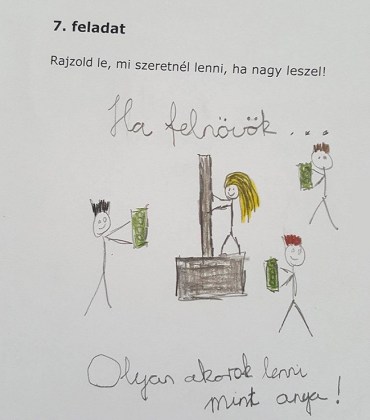 7. feladat
Rajzold le, mi szeretnél lenni, ha nagy leszel!
Ha felnövök...
Olyan akarok lenni
mint anya!